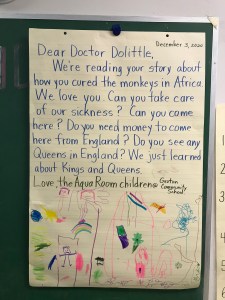 December 3, 2020
Dear Doctor Dolittle,
We're reading your story about
how you cured the monkeys in Africa.
We love you. Can you take care
of our sickness? Can you come
here? Do you need money to come
here from England? Do you see any
Queens in England? We just learned
about Kings and Queens.
Love, the Aqua Room children @
Community
School
1
2
3
4